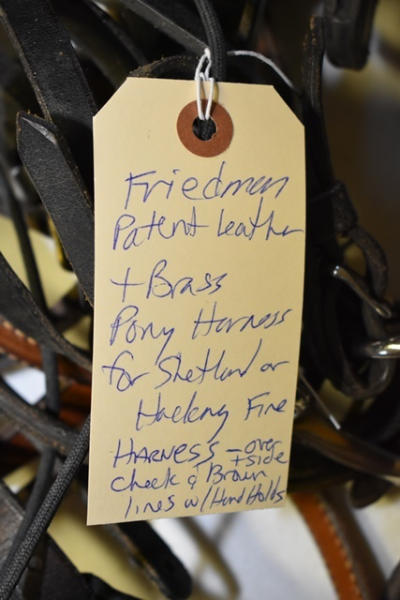 Friedman
Patent Leather
+ Brass
Pony Harness
for Shetland or
Hackny Fine
HARNESS - over
+ side
check & Brown
lines w/ Hand Holds